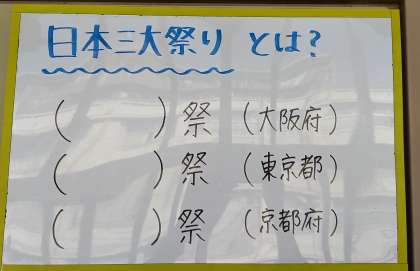 日本三大祭りとは?
(　　　)祭(大阪府)
(　　　)祭(東京都)
(　　　)祭(京都府)